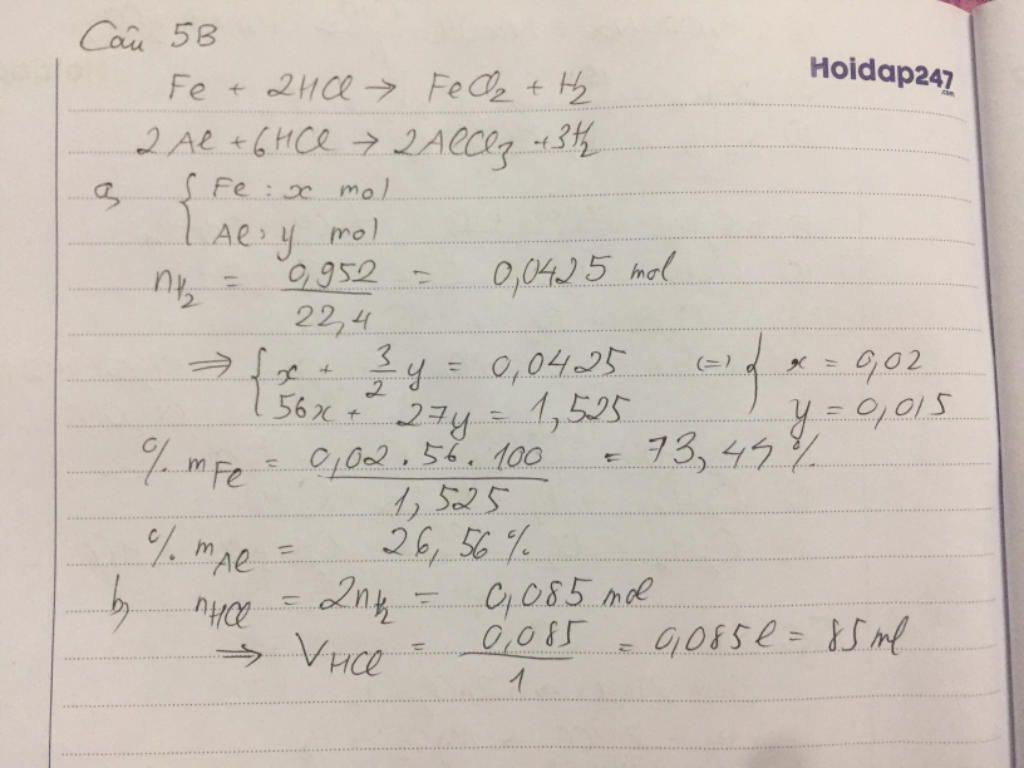 Câu 5B
Hoidap247.com
Fe + 2HCl → FeCl₂ + H₂
2Al + 6HCl → 2AlCl₃ + 3H₂
a, { Fe : x mol
Al : y mol
nH₂ = 0,952 / 22,4 = 0,0425 mol
⇒ { x + 3/2 y = 0,0425 (=) { x = 0,02
56x + 27y = 1,525 y = 0,015
% mFe = 0,02 . 56 . 100 / 1,525 = 73,44 %
% mAl = 26,56 %
b, nHCl = 2nH₂ = 0,085 mol
⇒ VHCl = 0,085 / 1 = 0,085l = 85 ml